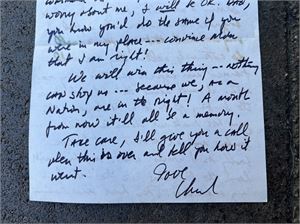 worry about me, I will be OK. Dad,
you know you'd do the same if you
were in my place --- convince mom
that I am right!
We will win this thing -- nothing
can stop us --- because we, as a
Nation, are in the right! A month
from now it'll all be a memory.
Take care, I'll give you a call
when this is over and tell you how it
went.
Love
Chuck